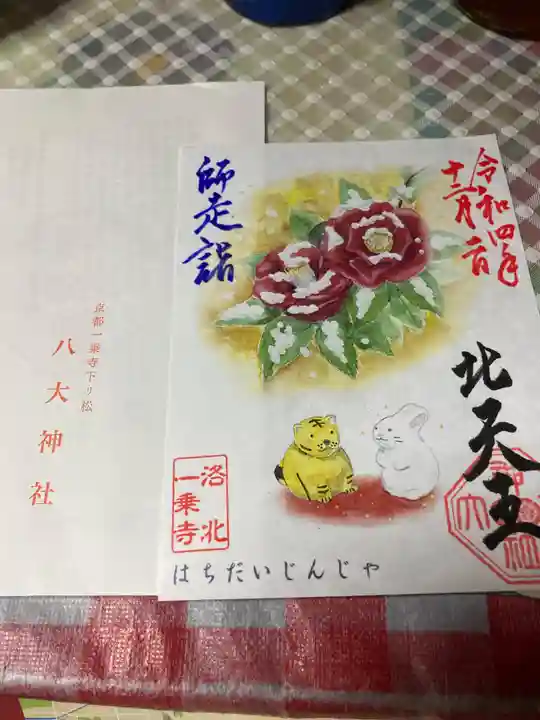 京都一乗寺下り松
八大神社
令和四年
十二月一日
師走詣
北天王
洛北
一乗寺
はちだいじんじゃ